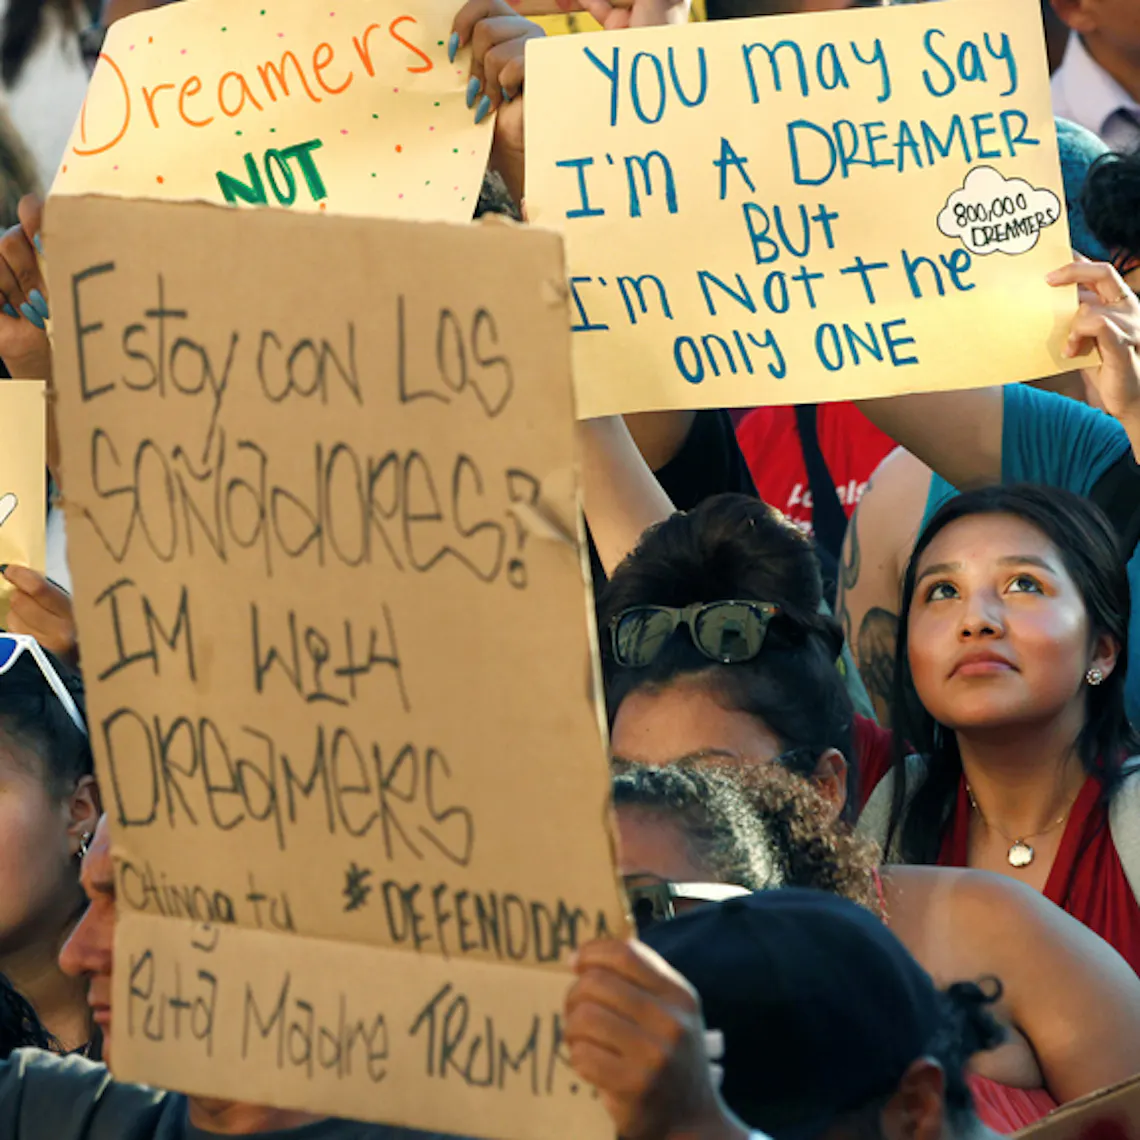 Dreamers
NOT
YOU may say
I'm A DREAMER
BUt
I'm NOt the
only ONE
800,000
DREAMERS
Estoy con Los
SOÑadORes?
IM WitH
DReaMeRS
Chinga tu #DEFENDDACA
Puta Madre TRUMP!